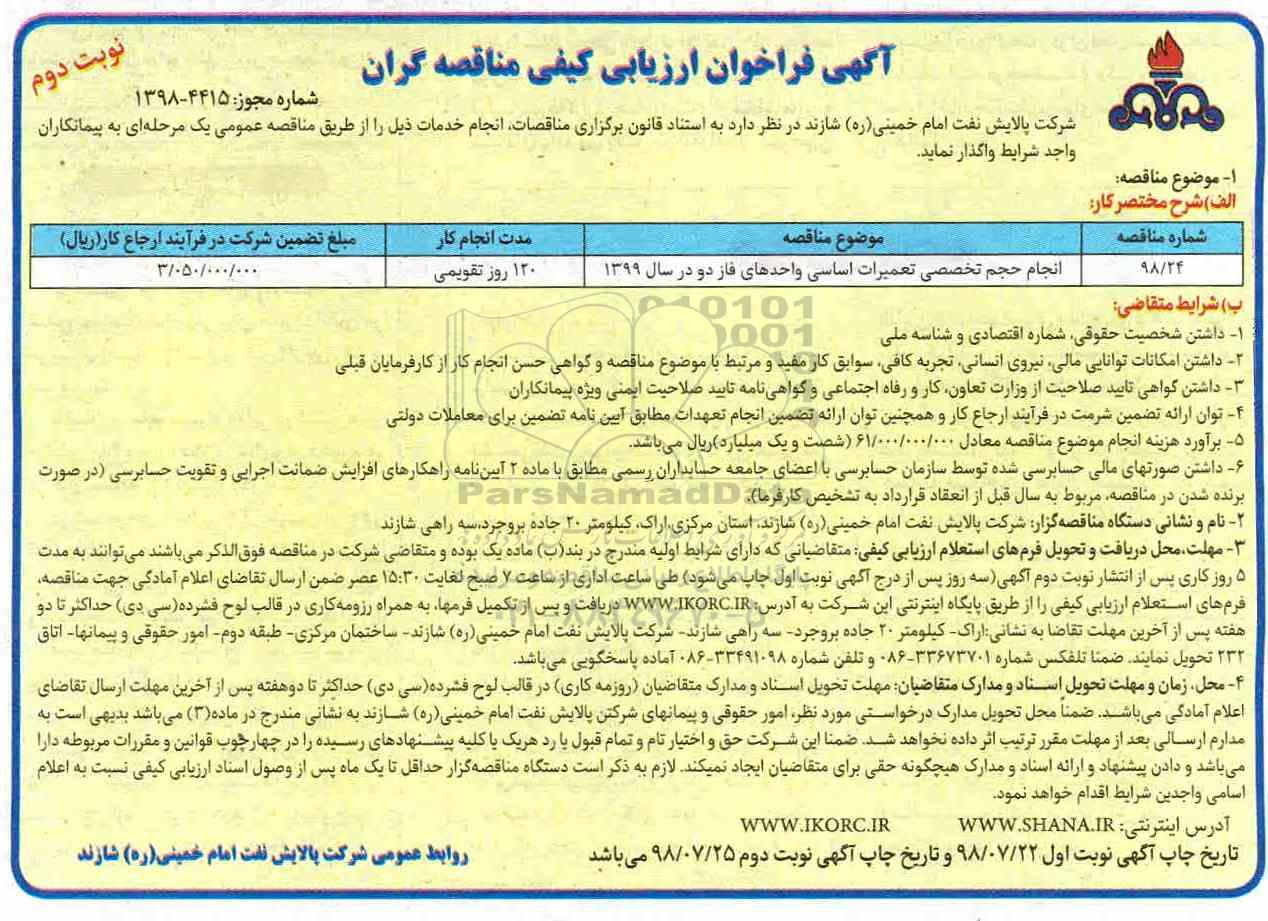 آگهی فراخوان ارزیابی کیفی مناقصه گران
نوبت دوم
شماره مجوز: ۴۴۱۵-۱۳۹۸
شرکت پالایش نفت امام خمینی(ره) شازند در نظر دارد به استناد قانون برگزاری مناقصات، انجام خدمات ذیل را از طریق مناقصه عمومی یک مرحله‌ای به پیمانکاران
واجد شرایط واگذار نماید.
۱- موضوع مناقصه:
الف)شرح مختصر کار:
شماره مناقصه موضوع مناقصه مدت انجام کار مبلغ تضمین شرکت در فرآیند ارجاع کار(ریال)
۹۸/۲۴ انجام حجم تخصصی تعمیرات اساسی واحدهای فاز دو در سال ۱۳۹۹ ۱۲۰ روز تقویمی ۳/۰۵۰/۰۰۰/۰۰۰
ب)شرایط متقاضی:
۱- داشتن شخصیت حقوقی، شماره اقتصادی و شناسه ملی
۲- داشتن امکانات توانایی مالی، نیروی انسانی، تجربه کافی، سوابق کار مفید و مرتبط با موضوع مناقصه و گواهی حسن انجام کار از کارفرمایان قبلی
۳- داشتن گواهی تایید صلاحیت از وزارت تعاون، کار و رفاه اجتماعی و گواهی‌نامه تایید صلاحیت ایمنی ویژه پیمانکاران
۴- توان ارائه تضمین شرمت در فرآیند ارجاع کار و همچنین توان ارائه تضمین انجام تعهدات مطابق آیین نامه تضمین برای معاملات دولتی
۵- برآورد هزینه انجام موضوع مناقصه معادل ۶۱/۰۰۰/۰۰۰/۰۰۰ (شصت و یک میلیارد)ریال می‌باشد.
۶- داشتن صورتهای مالی حسابرسی شده توسط سازمان حسابرسی با اعضای جامعه حسابداران رسمی مطابق با ماده ۲ آیین‌نامه راهکارهای افزایش ضمانت اجرایی و تقویت حسابرسی (در صورت
برنده شدن در مناقصه، مربوط به سال قبل از انعقاد قرارداد به تشخیص کارفرما).
ParsNamadData
۲- نام و نشانی دستگاه مناقصه‌گزار: شرکت پالایش نفت امام خمینی(ره) شازند، استان مرکزی،اراک، کیلومتر ۲۰ جاده بروجرد،سه راهی شازند
۳- مهلت،محل دریافت و تحویل فرم‌های استعلام ارزیابی کیفی: متقاضیانی که دارای شرایط اولیه مندرج در بند(ب) ماده یک بوده و متقاضی شرکت در مناقصه فوق‌الذکر می‌باشند می‌توانند به مدت
۵ روز کاری پس از انتشار نوبت دوم آگهی(سه روز پس از درج آگهی نوبت اول چاپ می‌شود) طی ساعت اداری از ساعت ۷ صبح لغایت ۱۵:۳۰ عصر ضمن ارسال تقاضای اعلام آمادگی جهت مناقصه،
فرم‌های استعلام ارزیابی کیفی را از طریق پایگاه اینترنتی این شرکت به آدرس: WWW.IKORC.IR دریافت و پس از تکمیل فرمها، به همراه رزومه‌کاری در قالب لوح فشرده(سی دی) حداکثر تا دو
هفته پس از آخرین مهلت تقاضا به نشانی:اراک- کیلومتر ۲۰ جاده بروجرد- سه راهی شازند- شرکت پالایش نفت امام خمینی(ره) شازند- ساختمان مرکزی- طبقه دوم- امور حقوقی و پیمانها- اتاق
۲۳۲ تحویل نمایند. ضمنا تلفکس شماره ۳۳۶۷۳۷۰۱-۰۸۶ و تلفن شماره ۳۳۴۹۱۰۹۸-۰۸۶ آماده پاسخگویی می‌باشد.
۴- محل، زمان و مهلت تحویل اسناد و مدارک متقاضیان: مهلت تحویل اسناد و مدارک متقاضیان (روزمه کاری) در قالب لوح فشرده(سی دی) حداکثر تا دوهفته پس از آخرین مهلت ارسال تقاضای
اعلام آمادگی می‌باشد. ضمناً محل تحویل مدارک درخواستی مورد نظر، امور حقوقی و پیمانهای شرکتن پالایش نفت امام خمینی(ره) شازند به نشانی مندرج در ماده(۳) می‌باشد بدیهی است به
مدارم ارسالی بعد از مهلت مقرر ترتیب اثر داده نخواهد شد. ضمنا این شرکت حق و اختیار تام و تمام قبول یا رد هریک یا کلیه پیشنهادهای رسیده را در چهارچوب قوانین و مقررات مربوطه دارا
می‌باشد و دادن پیشنهاد و ارائه اسناد و مدارک هیچگونه حقی برای متقاضیان ایجاد نمیکند. لازم به ذکر است دستگاه مناقصه‌گزار حداقل تا یک ماه پس از وصول اسناد ارزیابی کیفی نسبت به اعلام
اسامی واجدین شرایط اقدام خواهد نمود.
آدرس اینترنتی: WWW.SHANA.IR WWW.IKORC.IR
تاریخ چاپ آگهی نوبت اول ۹۸/۰۷/۲۲ و تاریخ چاپ آگهی نوبت دوم ۹۸/۰۷/۲۵ می‌باشد
روابط عمومی شرکت پالایش نفت امام خمینی(ره) شازند